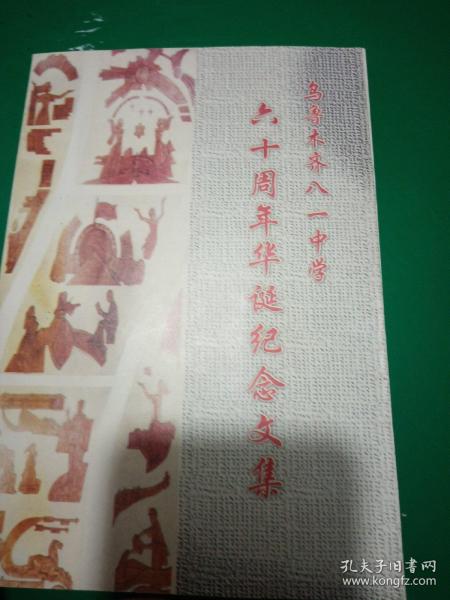 乌鲁木齐八一中学
六十周年华诞纪念文集
孔夫子旧书网
www.kongfz.com